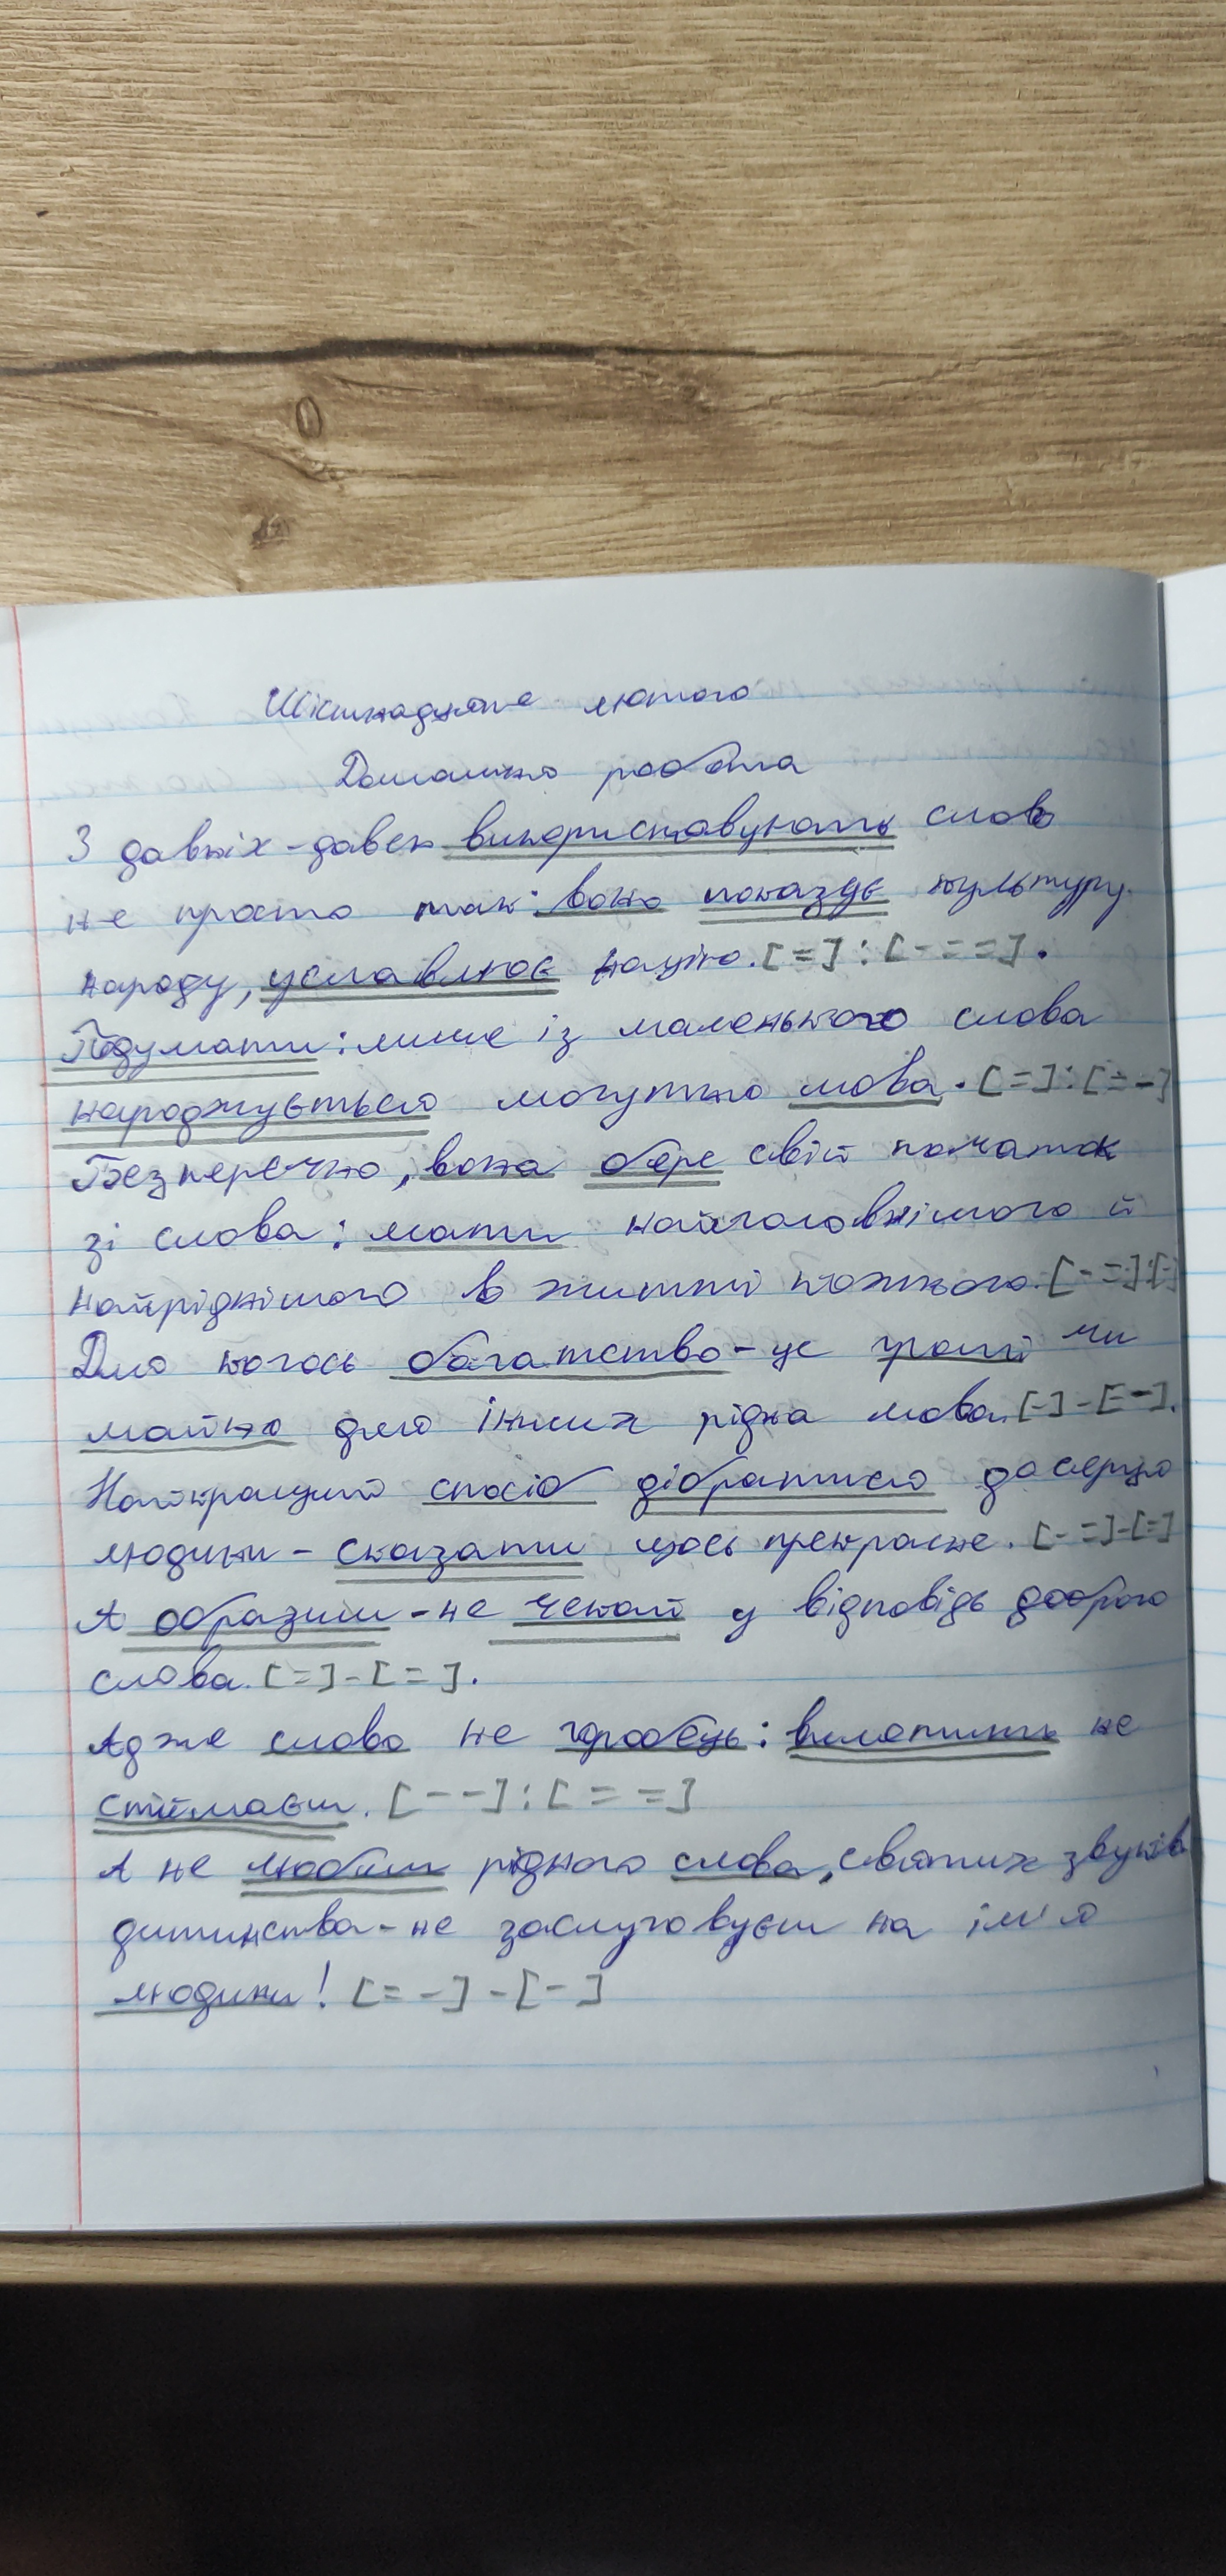 Шістнадцяте лютого
Домашня робота
З давніх-давен використовують слово
не просто так: воно показує культуру
народу, уславлює націю. [=] : [- = =].
Подумати: лише із маленького слова
народжується могутня мова. [=] : [= -]
Безперечно, вона бере свій початок
зі слова: мати найголовнішого й
найріднішого в житті кожного. [- =] : [-]
Для когось багатство - це гроші чи
майно для інших рідна мова. [-] - [- -].
Найкращий спосіб дібратися до серця
людини - сказати щось прекрасне. [- =] - [=]
А образиш - не чекай у відповідь доброго
слова. [=] - [=].
Адже слово не горобець: вилетить не
спіймаєш. [- -] : [= =]
А не любиш рідного слова, святих звуків
дитинства - не заслуговуєш на ім'я
людини! [= -] - [-]